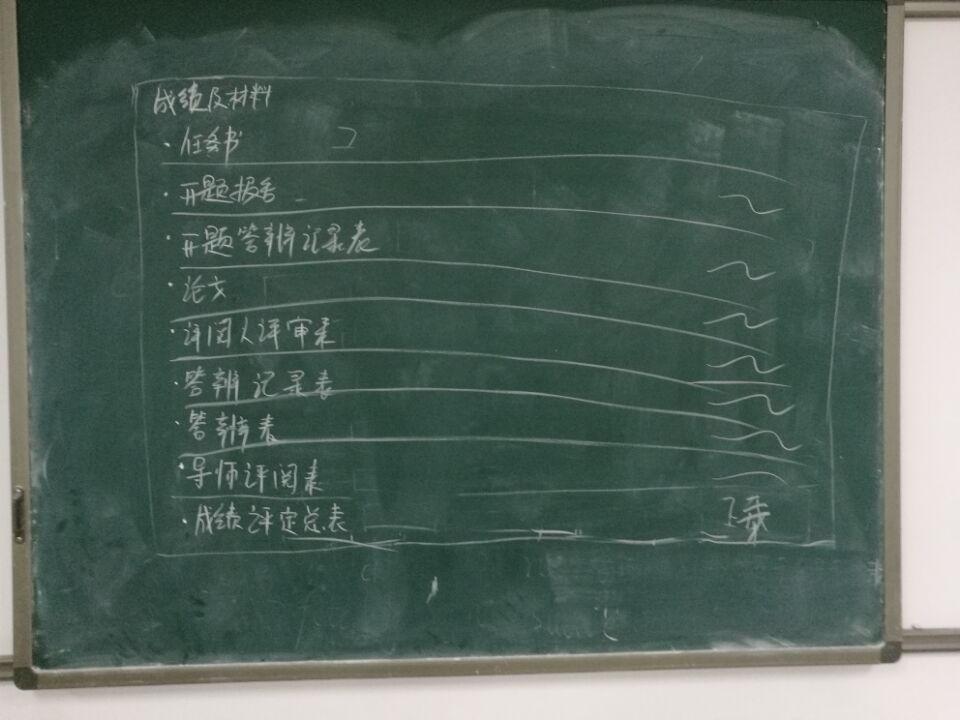 成绩及材料
· 任务书
· 开题报告
· 开题答辩记录表
· 论文
· 评阅人评审表
· 答辩记录表
· 答辩表
· 导师评阅表
· 成绩评定总表